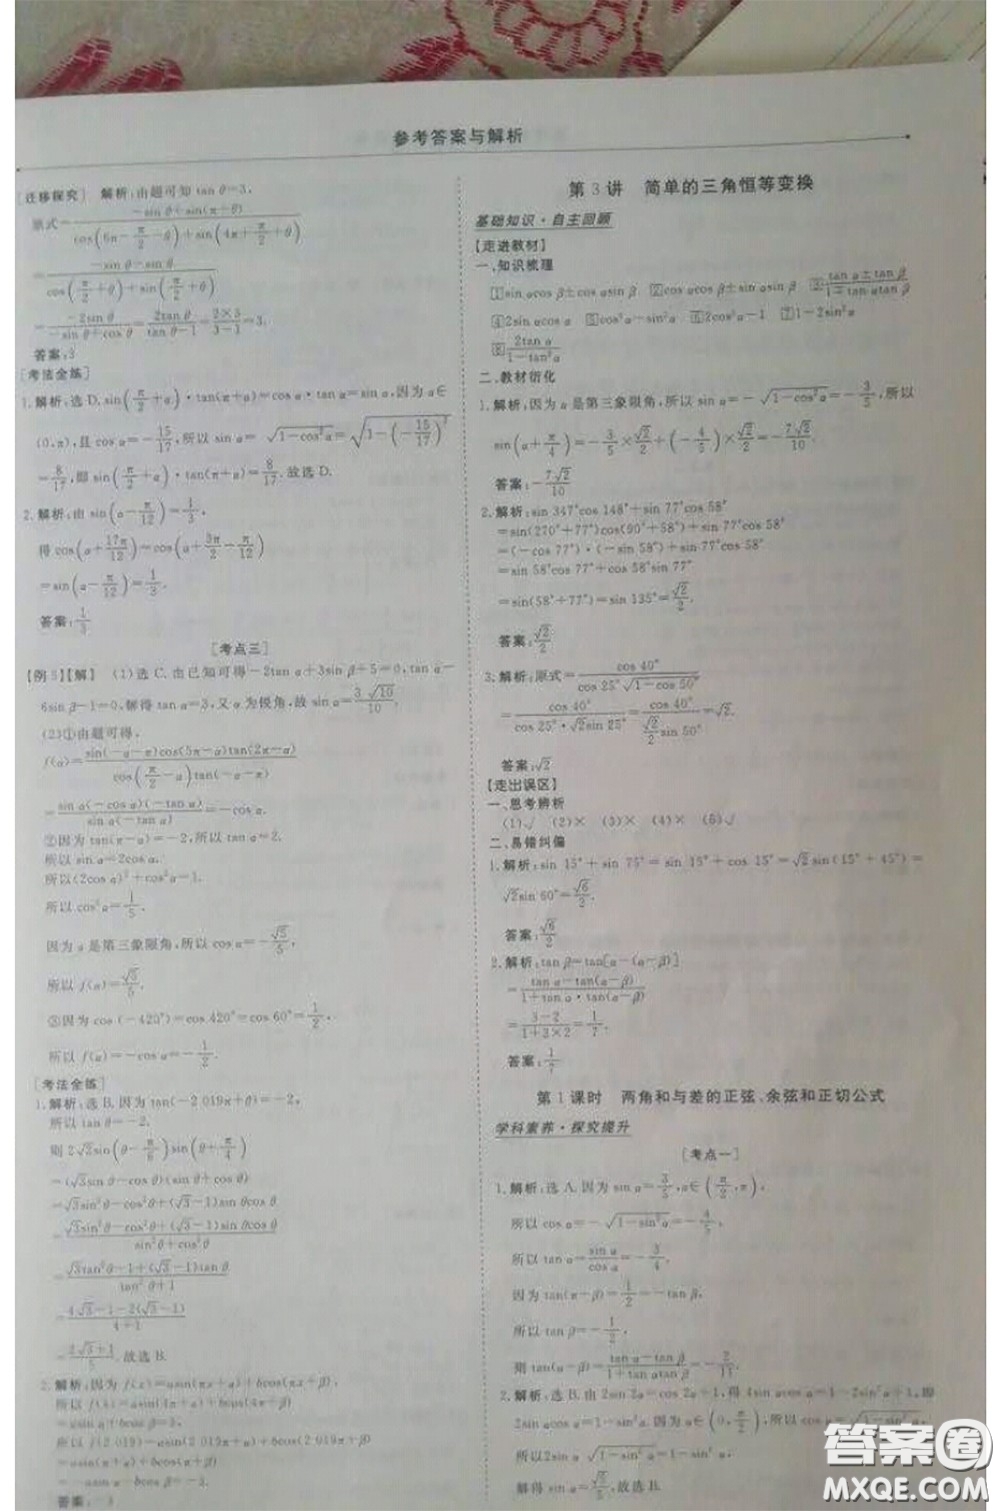 参考答案与解析
[迁移探究] 解析:由题可知 tan θ=3,
原式=(-sin θ+sin(π+θ))/(cos(6π-π/2-θ)+sin(4π+π/2+θ))
=(-sin θ-sin θ)/(cos(π/2+θ)+sin(π/2+θ))
=(-2sin θ)/(-sin θ+cos θ)=(2tan θ)/(tan θ-1)=(2×3)/(3-1)=3.
答案:3
[考法全练]
1.解析:选 D. sin(π/2+α)·tan(π+α)=cos α·tan α=sin α,因为 α∈
(0,π),且 cos α=-15/17,所以 sin α=√(1-cos²α)=√(1-(-15/17)²)
=8/17,即 sin(π/2+α)·tan(π+α)=8/17.故选 D.
2.解析:由 sin(α-π/12)=1/3,
得 cos(α+17π/12)=cos(α+3π/2-π/12)
=sin(α-π/12)=1/3.
答案:1/3
[考点三]
[例 3]【解】 (1)选 C.由已知可得-2tan α+3sin β+5=0,tan α-
6sin β-1=0,解得 tan α=3,又 α 为锐角,故 sin α=3√10/10.
(2)①由题可得,
f(α)=(sin(-α-π)cos(5π-α)tan(2π-α))/(cos(π/2-α)tan(-α-π))
=(sin α(-cos α)(-tan α))/(sin α(-tan α))
②因为 tan(π-α)=-2,所以 tan α=2.
所以 sin α=2cos α.
所以(2cos α)²+cos²α=1.
所以 cos²α=1/5.
因为 α 是第三象限角,所以 cos α=-√5/5,
所以 f(α)=√5/5.
③因为 cos(-420°)=cos 420°=cos 60°=1/2,
所以 f(α)=-cos α=-1/2.
[考法全练]
1.解析:选 B.因为 tan(-2 019π+θ)=-2,
所以 tan θ=-2.
则 2√2sin(θ-π/6)sin(θ+π/4)
=(√3sin θ-cos θ)(sin θ+cos θ)
=√3sin²θ-cos²θ+(√3-1)sin θcos θ
=(√3sin²θ-cos²θ+(√3-1)sin θcos θ)/(sin²θ+cos²θ)
=(√3tan²θ-1+(√3-1)tan θ)/(tan²θ+1)
=(4√3-1-2(√3-1))/(4+1)
=(2√3+1)/5.故选 B.
2.解析:因为 f(x)=asin(πx+α)+bcos(πx+β),
所以 f(4)=asin(4π+α)+bcos(4π+β)
=asin α+bcos β=3,
所以 f(2 019)=asin(2 019π+α)+bcos(2 019π+β)
=-asin α-bcos β=-3.
答案:-3
第 3 讲 简单的三角恒等变换
基础知识·自主回顾
[走进教材]
一、知识梳理
1 sin αcos β±cos αsin β 2 cos αcos β±sin αsin β 3 (tan α±tan β)/(1∓tan αtan β)
4 2sin αcos α 5 cos²α-sin²α 6 2cos²α-1 7 1-2sin²α
8 (2tan α)/(1-tan²α)
二、教材衍化
1.解析:因为 α 是第三象限角,所以 sin α=-√(1-cos²α)=-3/5,所以
sin(α+π/4)=-3/5×√2/2+(-4/5)×√2/2=-7√2/10.
答案:-7√2/10
2.解析:sin 347°cos 148°+sin 77°cos 58°
=sin(270°+77°)cos(90°+58°)+sin 77°cos 58°
=(-cos 77°)·(-sin 58°)+sin 77°cos 58°
=sin 58°cos 77°+cos 58°sin 77°
=sin(58°+77°)=sin 135°=√2/2.
答案:√2/2
3.解析:原式=cos 40°/(cos 25°√(1-cos 50°))
=cos 40°/(cos 25°·√2sin 25°)=cos 40°/((√2/2)sin 50°)=√2.
答案:√2
[走出误区]
一、思考辨析
(1)√ (2)× (3)× (4)× (5)√
二、易错纠偏
1.解析:sin 15°+sin 75°=sin 15°+cos 15°=√2sin(15°+45°)=
√2sin 60°=√6/2.
答案:√6/2
2.解析:tan β=tan[α-(α-β)]
=(tan α-tan(α-β))/(1+tan α·tan(α-β))
=(3-2)/(1+3×2)=1/7.
答案:1/7
第 1 课时 两角和与差的正弦、余弦和正切公式
学科素养·探究提升
[考点一]
1.解析:选 A.因为 sin α=3/5,α∈(π/2,π),
所以 cos α=-√(1-sin²α)=-4/5,
所以 tan α=sin α/cos α=-3/4.
因为 tan(π-β)=1/2=-tan β,
所以 tan β=-1/2,
则 tan(α-β)=(tan α-tan β)/(1+tan αtan β)=-2/11.
2.解析:选 B.由 2sin 2α=cos 2α+1,得 4sin αcos α=1-2sin²α+1,即
2sin αcos α=1-sin²α.因为 α∈(0,π/2),所以 cos α=√(1-sin²α),所以
2sin α√(1-sin²α)=1-sin²α,
解得 sin α=√5/5,故选 B.
答案圈
MXQE.COM